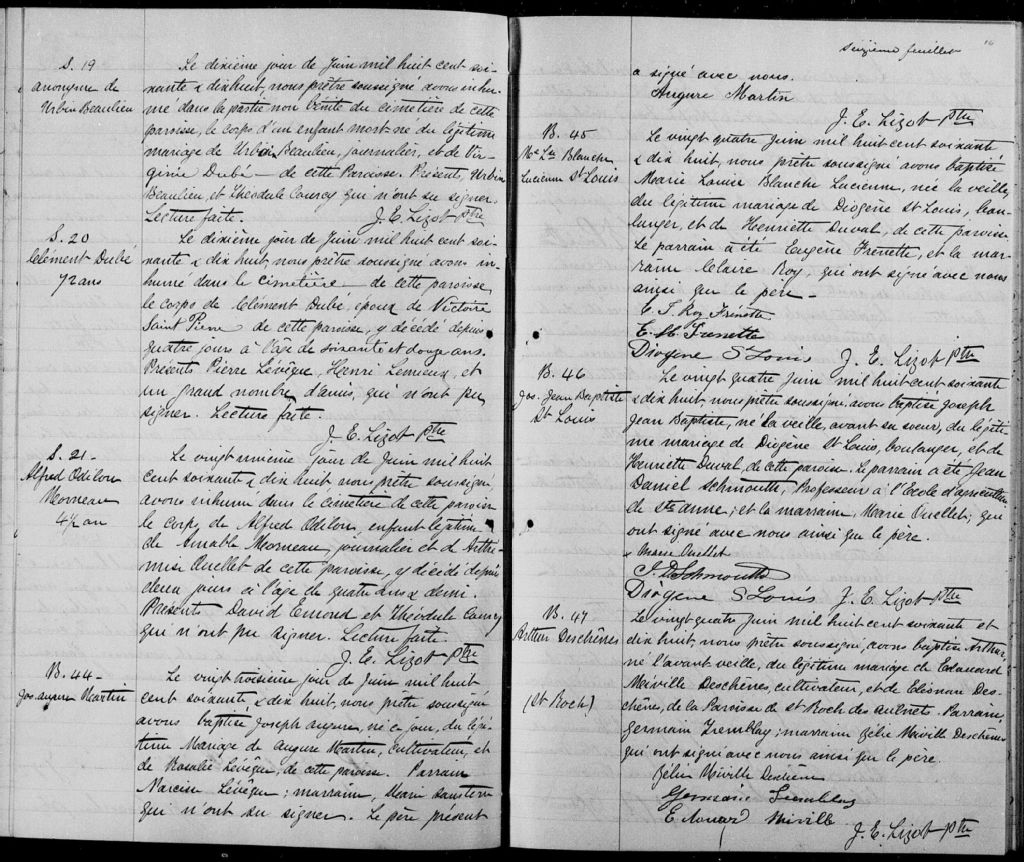 S. 19
anonyme de
Urbin Beaulieu
Le dixième jour de Juin mil huit cent soi-
xante & dixhuit, nous prêtre soussigné avons inhu-
mé dans la partie non bénite du cimetière de cette
paroisse, le corps d'un enfant mort-né du légitime
mariage de Urbin Beaulieu, journalier, et de Vir-
ginie Dubé — de cette Paroisse. Présents, Urbin
Beaulieu, et Théodule Courcy qui n'ont su signer.
Lecture faite. J. E. Lizot Ptre
S. 20
Clément Dubé
72 ans
Le dixième jour de Juin mil huit cent soi-
xante & dix huit, nous prêtre soussigné avons in-
humé dans le cimetière — de cette paroisse
le corps de Clément Dubé, époux de Victoire
Saint Pierre de cette paroisse, y décédé depuis
quatre jours à l'âge de soixante et douze ans.
Présents Pierre Lévêque, Henri Lemieux, et
un grand nombre d'amis, qui n'ont pu
signer. Lecture faite.
J. E. Lizot Ptre
S. 21-
Alfred Odilon
Morneau
4½ an
Le vingt unième jour de Juin mil huit
cent soixante & dix huit nous prêtre soussigné
avons inhumé dans le cimetière de cette paroisse
le corps de Alfred Odilon, enfant légitime
de Amable Morneau, journalier et d'Arthé-
mise Ouellet de cette paroisse, y décédé depuis
deux jours à l'âge de quatre ans & demi.
Présents David Emond et Théodule Courcy
qui n'ont pu signer. Lecture faite.
J. E. Lizot Ptre
B. 44-
Jos. augure Martin
Le vingt troisième jour de Juin mil huit
cent soixante, & dix huit, nous prêtre soussigné
avons baptisé Joseph augure, né ce jour, du légi-
time Mariage de augure Martin, Cultivateur, et
de Rosalie Lévêque, de cette paroisse. Parrain
Narcisse Lévêque ; marraine, Marie
qui n'ont su signer. Le père présent
Seizième feuillet
16
a signé avec nous.
Augure Martin
J. E. Lizot Ptre
B. 45
Me Lse Blanche
Lucienne St Louis
Le vingt quatre Juin mil huit cent soixante
& dix huit, nous prêtre soussigné avons baptisé
Marie Louise Blanche Lucienne, née la veille,
du légitime mariage de Diogène St Louis, bou-
langer, et de Henriette Duval, de cette paroisse
Le parrain a été Eugène Frenette, et la mar-
raine Claire Roy, qui ont signé avec nous
ainsi que le père —
C. T. Roy Frenette
E. M. Frenette
Diogène St Louis J. E. Lizot Ptre
B. 46
Jos. Jean Baptiste
St Louis
Le vingt quatre Juin mil huit cent soixante
& dix huit, nous prêtre soussigné avons baptisé Joseph
Jean Baptiste, né la veille, avant sa soeur, du légiti-
me mariage de Diogène St Louis, boulanger, et de
Henriette Duval, de cette paroisse. Le parrain a été Jean
Daniel Schmouth, Professeur à l'Ecole d'agriculture
de Ste anne ; et la marraine, Marie Ouellet ; qui
ont signé avec nous ainsi que le père.
x Marie Ouellet
J. D. Schmouth
Diogène St Louis J. E. Lizot Ptre
B. 47
Arthur Deschênes
(St Roch)
Le vingt quatre Juin mil huit cent soixante et
dix huit, nous prêtre soussigné, avons baptisé Arthur,
né l'avant veille, du légitime mariage de Edouard
Miville Deschênes, cultivateur, et de Eléonore Des-
chênes, de la Paroisse de St Roch des aulnets. Parrain
Germain Tremblay ; marraine Zélie Miville Deschênes
qui ont signé avec nous ainsi que le père.
Zélie Miville Deschênes
Germain Tremblay
Edouard Miville
J. E. Lizot Ptre